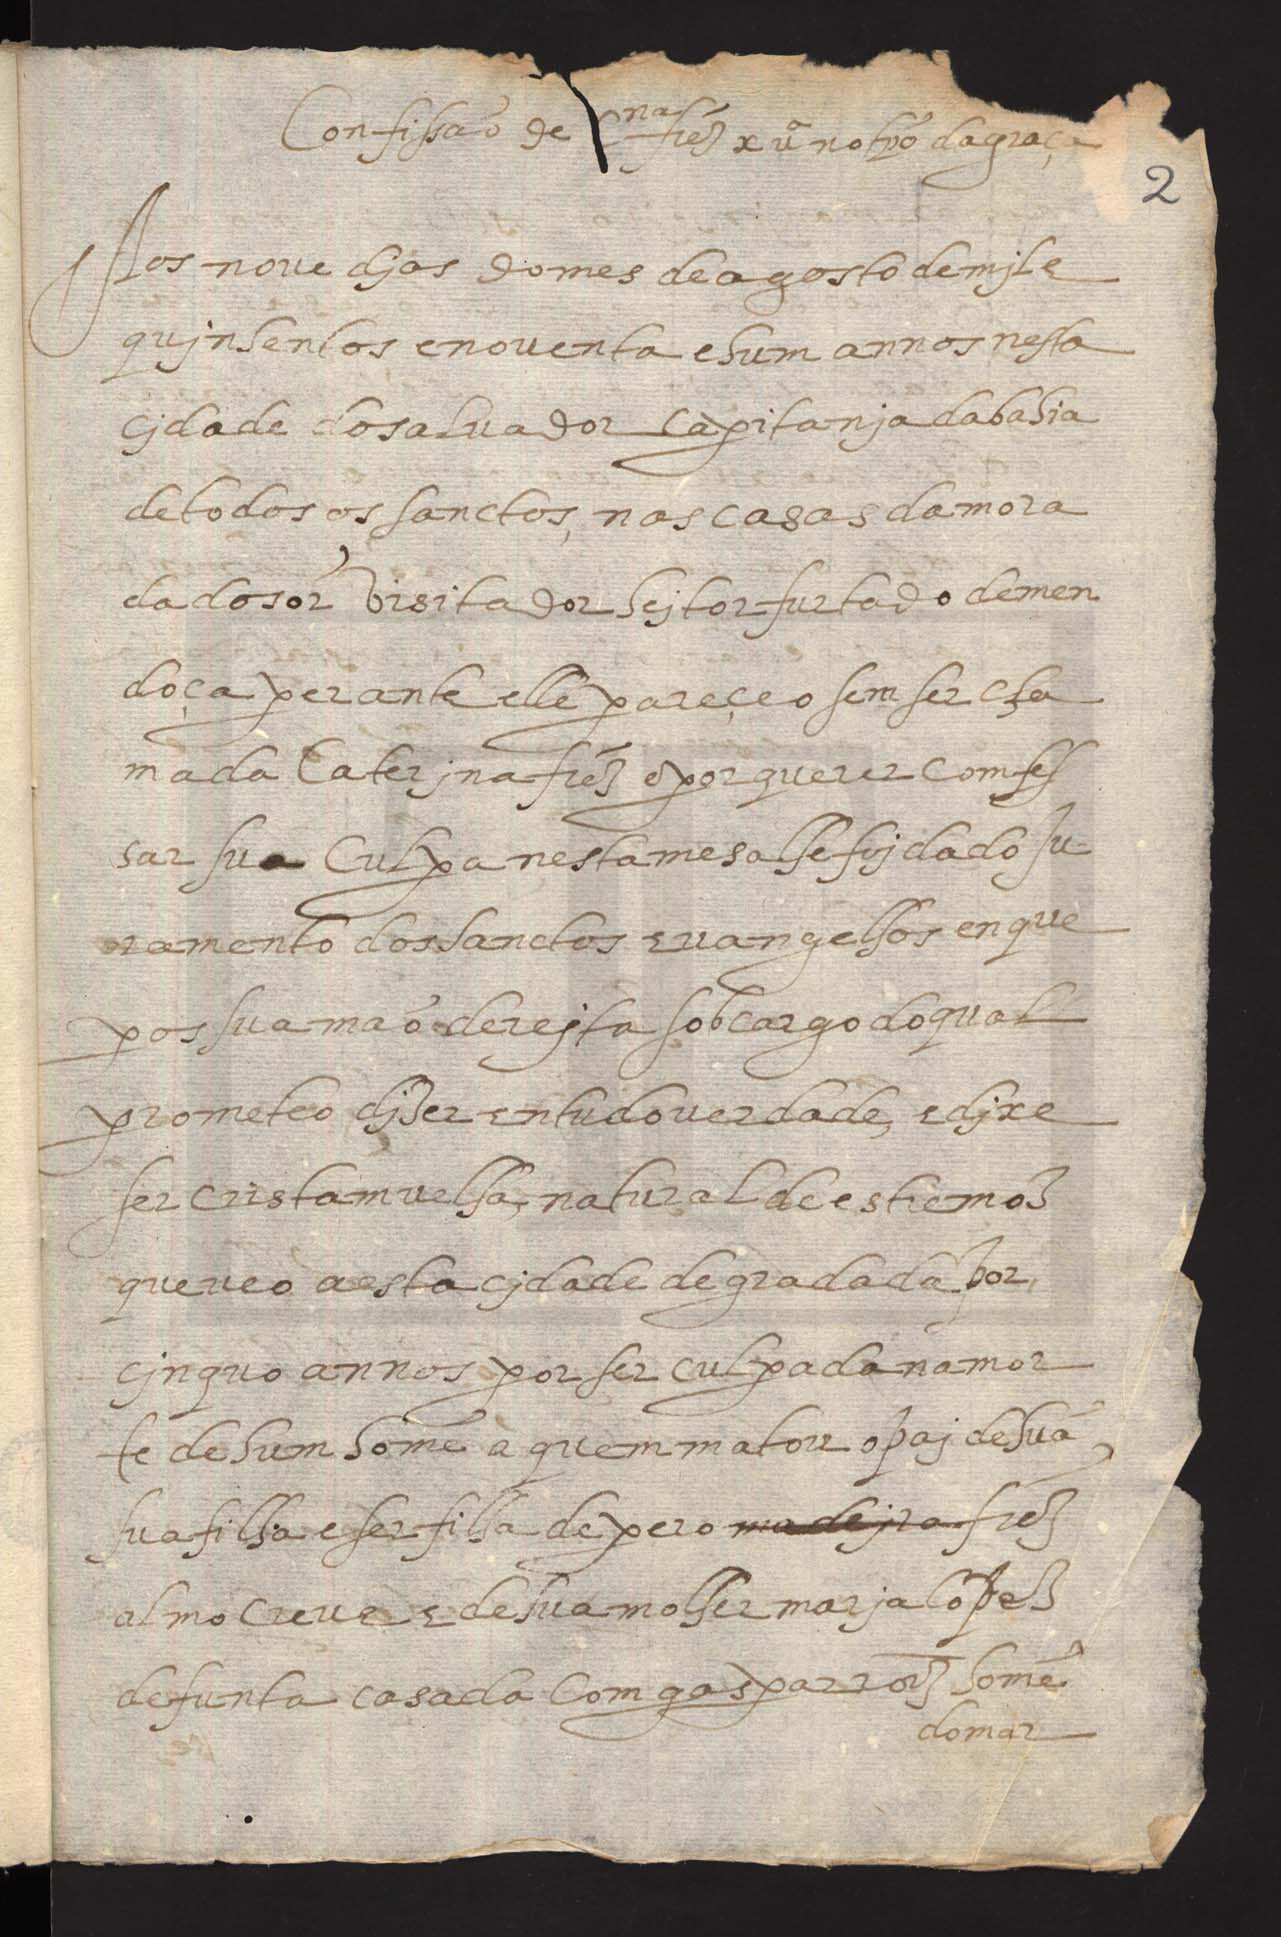 Confissaõ de C^na frz̃ xpã vª no tpõ da graça
2
Aos nove djas do mes de agosto de mjl e
qujnhentos e noventa e hum annos nesta
cjdade do saluador capitanja da bahia
de todos os sanctos, nas casas da mora
da do sõr visitador hejtor furtado de men
doça perante elle pareçeo sem ser cha
mada Caterjna frõz e por querer comfes
sar sua Culpa nesta mesa lhe foj dado Ju-
ramento dos sanctos evangelhos en que
pos sua maõ derejta sob cargo do qual
prometeo djzer en tudo verdade, e djxe
ser cristam velha, natural de estremoz
que veo a esta cjdade degradada por
cjnquo annos por ser culpada na mor
te de hum home a quem matou o paj de sua
sua filha e ser filha de pero madejra froẽz
almocreve e de sua molher marja lopez
defunta casada Com gaspar roĩz home
do mar